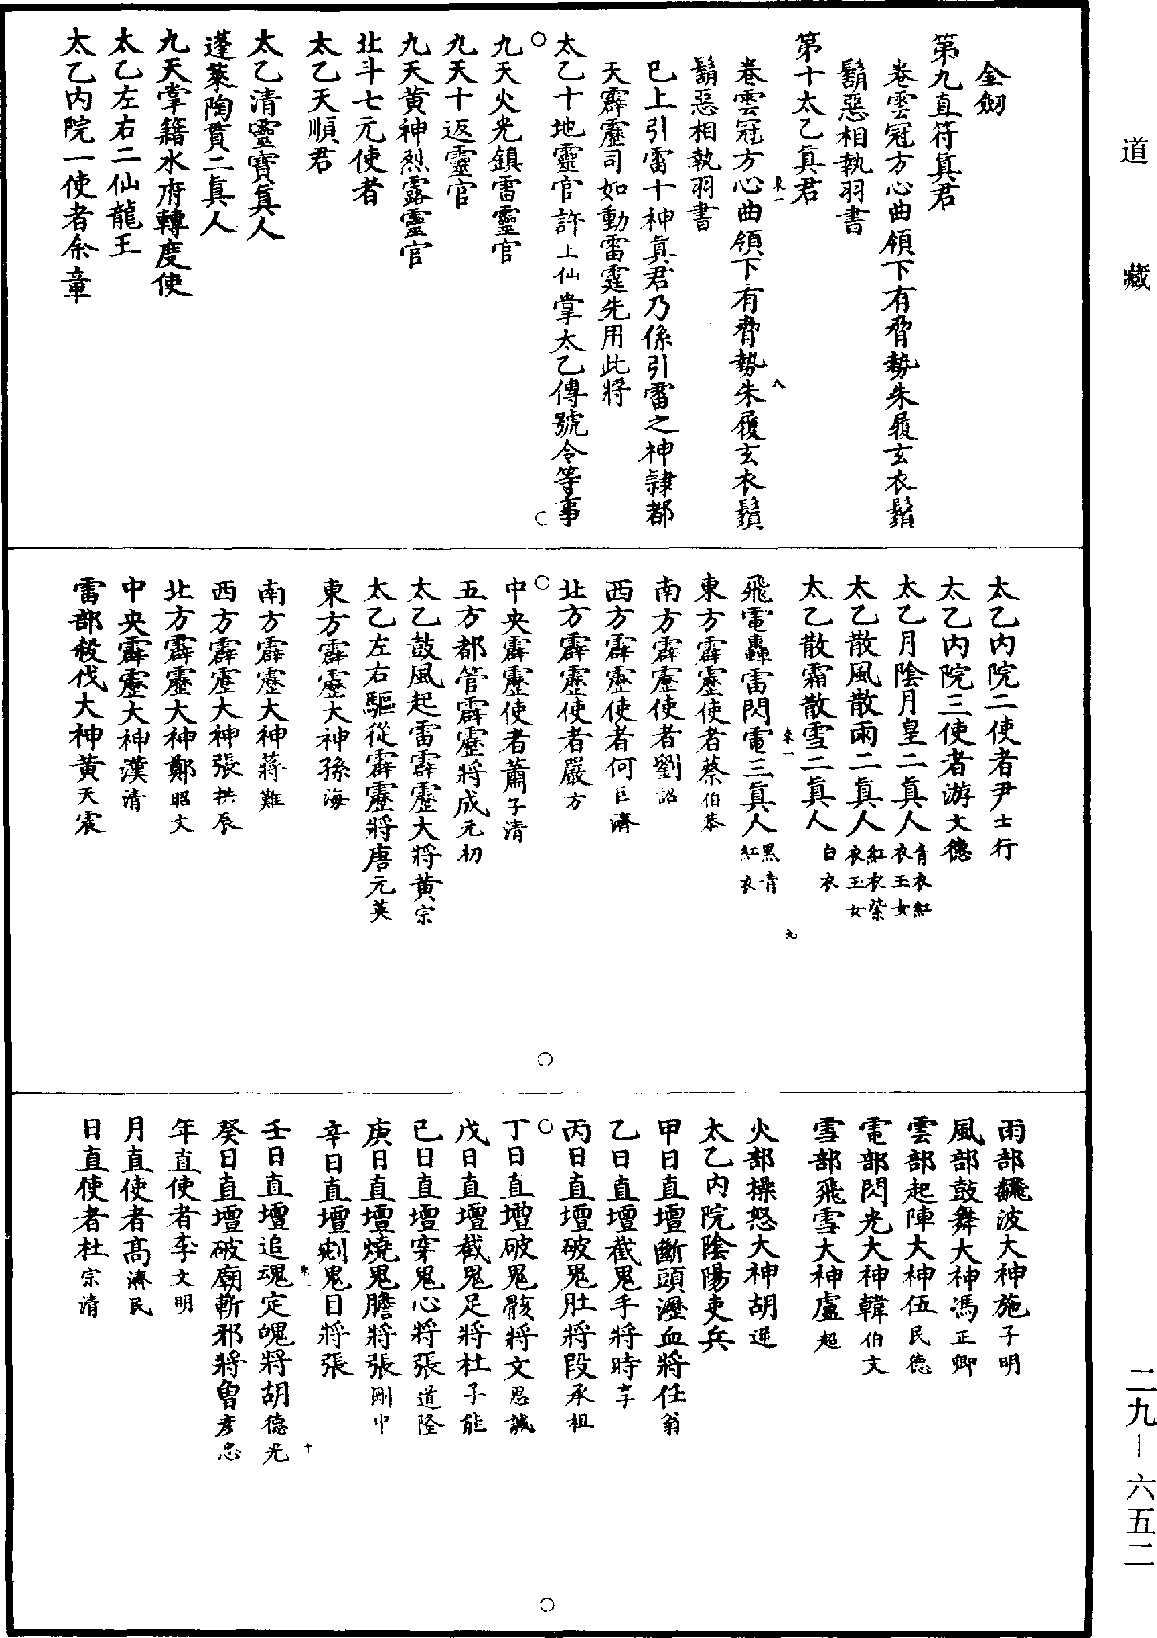 道藏
金劒
第九直符真君
卷雲冠方心曲領下有脅勢朱履玄衣鬚
鬍惡相執羽書
第十太乙真君
卷雲冠方心曲領下有脅勢朱履玄衣鬚
鬍惡相執羽書
已上引雷十神真君乃係引雷之神隸都
天霹靂司如動雷霆先用此將
太乙十地靈官許上仙掌太乙傳號令等事
九天火光鎮雷靈官
九天十返靈官
九天黃神烈露靈官
北斗七元使者
太乙天順君
太乙清靈寶真人
蓬萊陶賁二真人
九天掌籍水府轉度使
太乙左右二仙龍王
太乙內院一使者余章
太乙內院二使者尹士行
太乙內院三使者游文德
太乙月陰月皇二真人青衣紅衣玉女
太乙散風散雨二真人紅衣紫衣玉女
太乙散霜散雪二真人白衣
飛電轟雷閃電三真人黑青紅衣
東方霹靂使者蔡伯恭
南方霹靂使者劉詔
西方霹靂使者何巨濟
北方霹靂使者嚴方
中央霹靂使者蕭子清
五方都管霹靂將成元初
太乙鼓風起雷霹靂大將黃宗
太乙左右驅從霹靂將唐元英
東方霹靂大神孫海
南方霹靂大神蔣難
西方霹靂大神張拱辰
北方霹靂大神鄭昭文
中央霹靂大神漢清
雷部殺伐大神黃天震
雨部飜波大神施子明
風部鼓舞大神馮正卿
雲部起陣大神伍民德
電部閃光大神韓伯文
雪部飛雪大神盧超
火部操怒大神胡逆
太乙內院陰陽吏兵
甲日直壇斷頭瀝血將任翁
乙日直壇截鬼手將時亨
丙日直壇破鬼肚將段承祖
丁日直壇破鬼骸將文思誠
戊日直壇截鬼足將杜子能
己日直壇穿鬼心將張道隆
庚日直壇燒鬼膽將張剛中
辛日直壇剜鬼目將張
壬日直壇追魂定魄將胡德光
癸日直壇破廟斬邪將魯彥忠
年直使者李文明
月直使者高濟民
日直使者杜宗清
二九—六五二